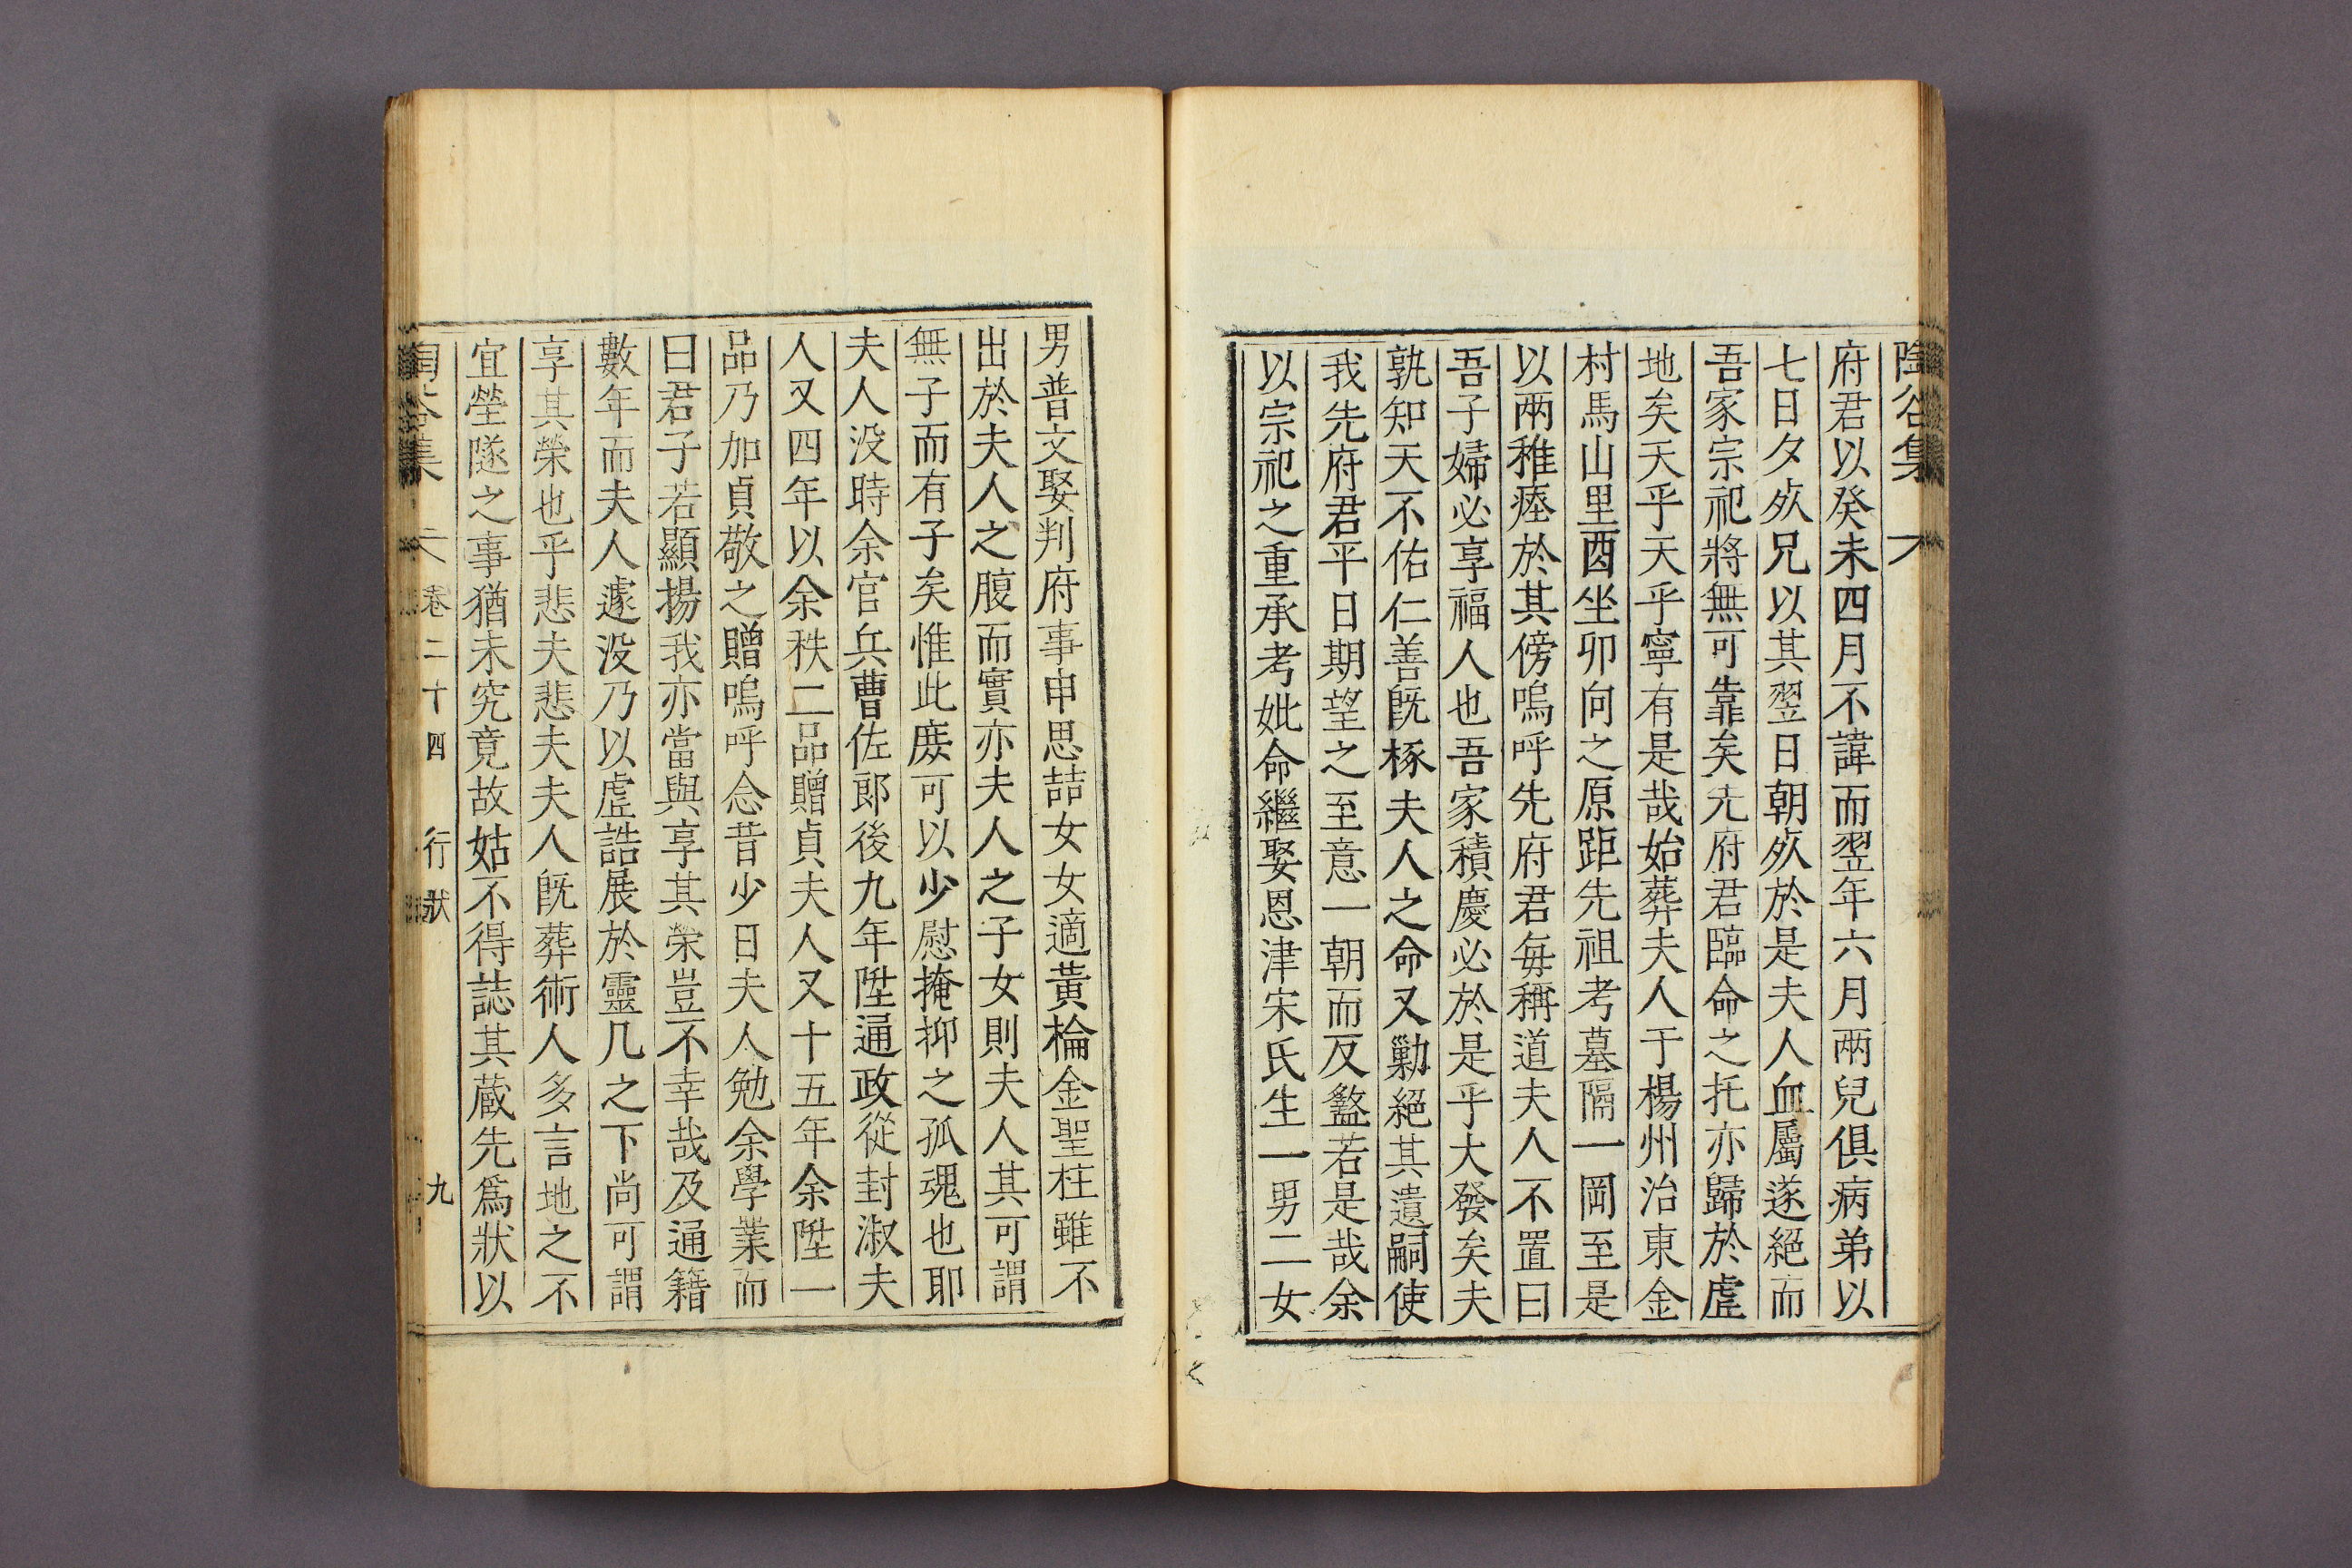 陶谷集
府君以癸未四月不諱而翌年六月兩兒俱病弟以
七日夕殀兄以其翌日朝殀於是夫人血屬遂絕而
吾家宗祀將無可靠矣先府君臨命之托亦歸於虛
地矣天乎天乎寧有是哉始葬夫人于楊州治東金
村馬山里酉坐卯向之原距先祖考墓隔一岡至是
以兩稚瘞於其傍嗚呼先府君每稱道夫人不置曰
吾子婦必享福人也吾家積慶必於是乎大發矣夫
孰知天不佑仁善旣椓夫人之命又勦絕其遺嗣使
我先府君平日期望之至意一朝而反盭若是哉余
以宗祀之重承考妣命繼娶恩津宋氏生一男二女
男普文娶判府事申思喆女女適黃棆金聖柱雖不
出於夫人之腹而實亦夫人之子女則夫人其可謂
無子而有子矣惟此庶可以少慰掩抑之孤魂也耶
夫人没時余官兵曹佐郎後九年陞通政從封淑夫
人又四年以余秩二品贈貞夫人又十五年余陞一
品乃加貞敬之贈嗚呼念昔少日夫人勉余學業而
曰君子若顯揚我亦當與享其榮豈不幸哉及通籍
數年而夫人遽没乃以虛誥展於靈几之下尚可謂
享其榮也乎悲夫悲夫夫人旣葬術人多言地之不
宜塋隧之事猶未究竟故姑不得誌其葳先爲狀以
陶谷集 卷二十四 行狀 九